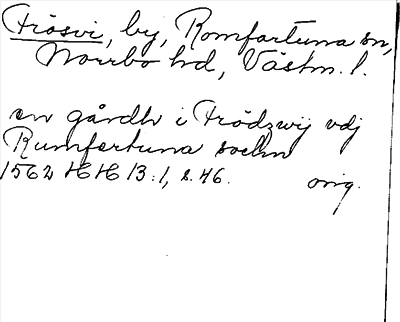 Frösvi, by, Romfartuna sn,
Norrbo hd, Västm. l.
en gårdh i Frödzwij vdj
Rumfertuna sochn
1562 HH 13:1, s. 46. orig.